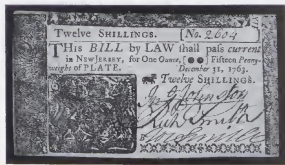 Twelve SHILLINGS. [No. 2604
THis BILL by LAW ſhall paſs current
in NEW-JERSEY, for One Ounce, [●●] Fifteen Peny-
weight of PLATE. December 31, 1763.
Twelve SHILLINGS.
Johnston
Smith